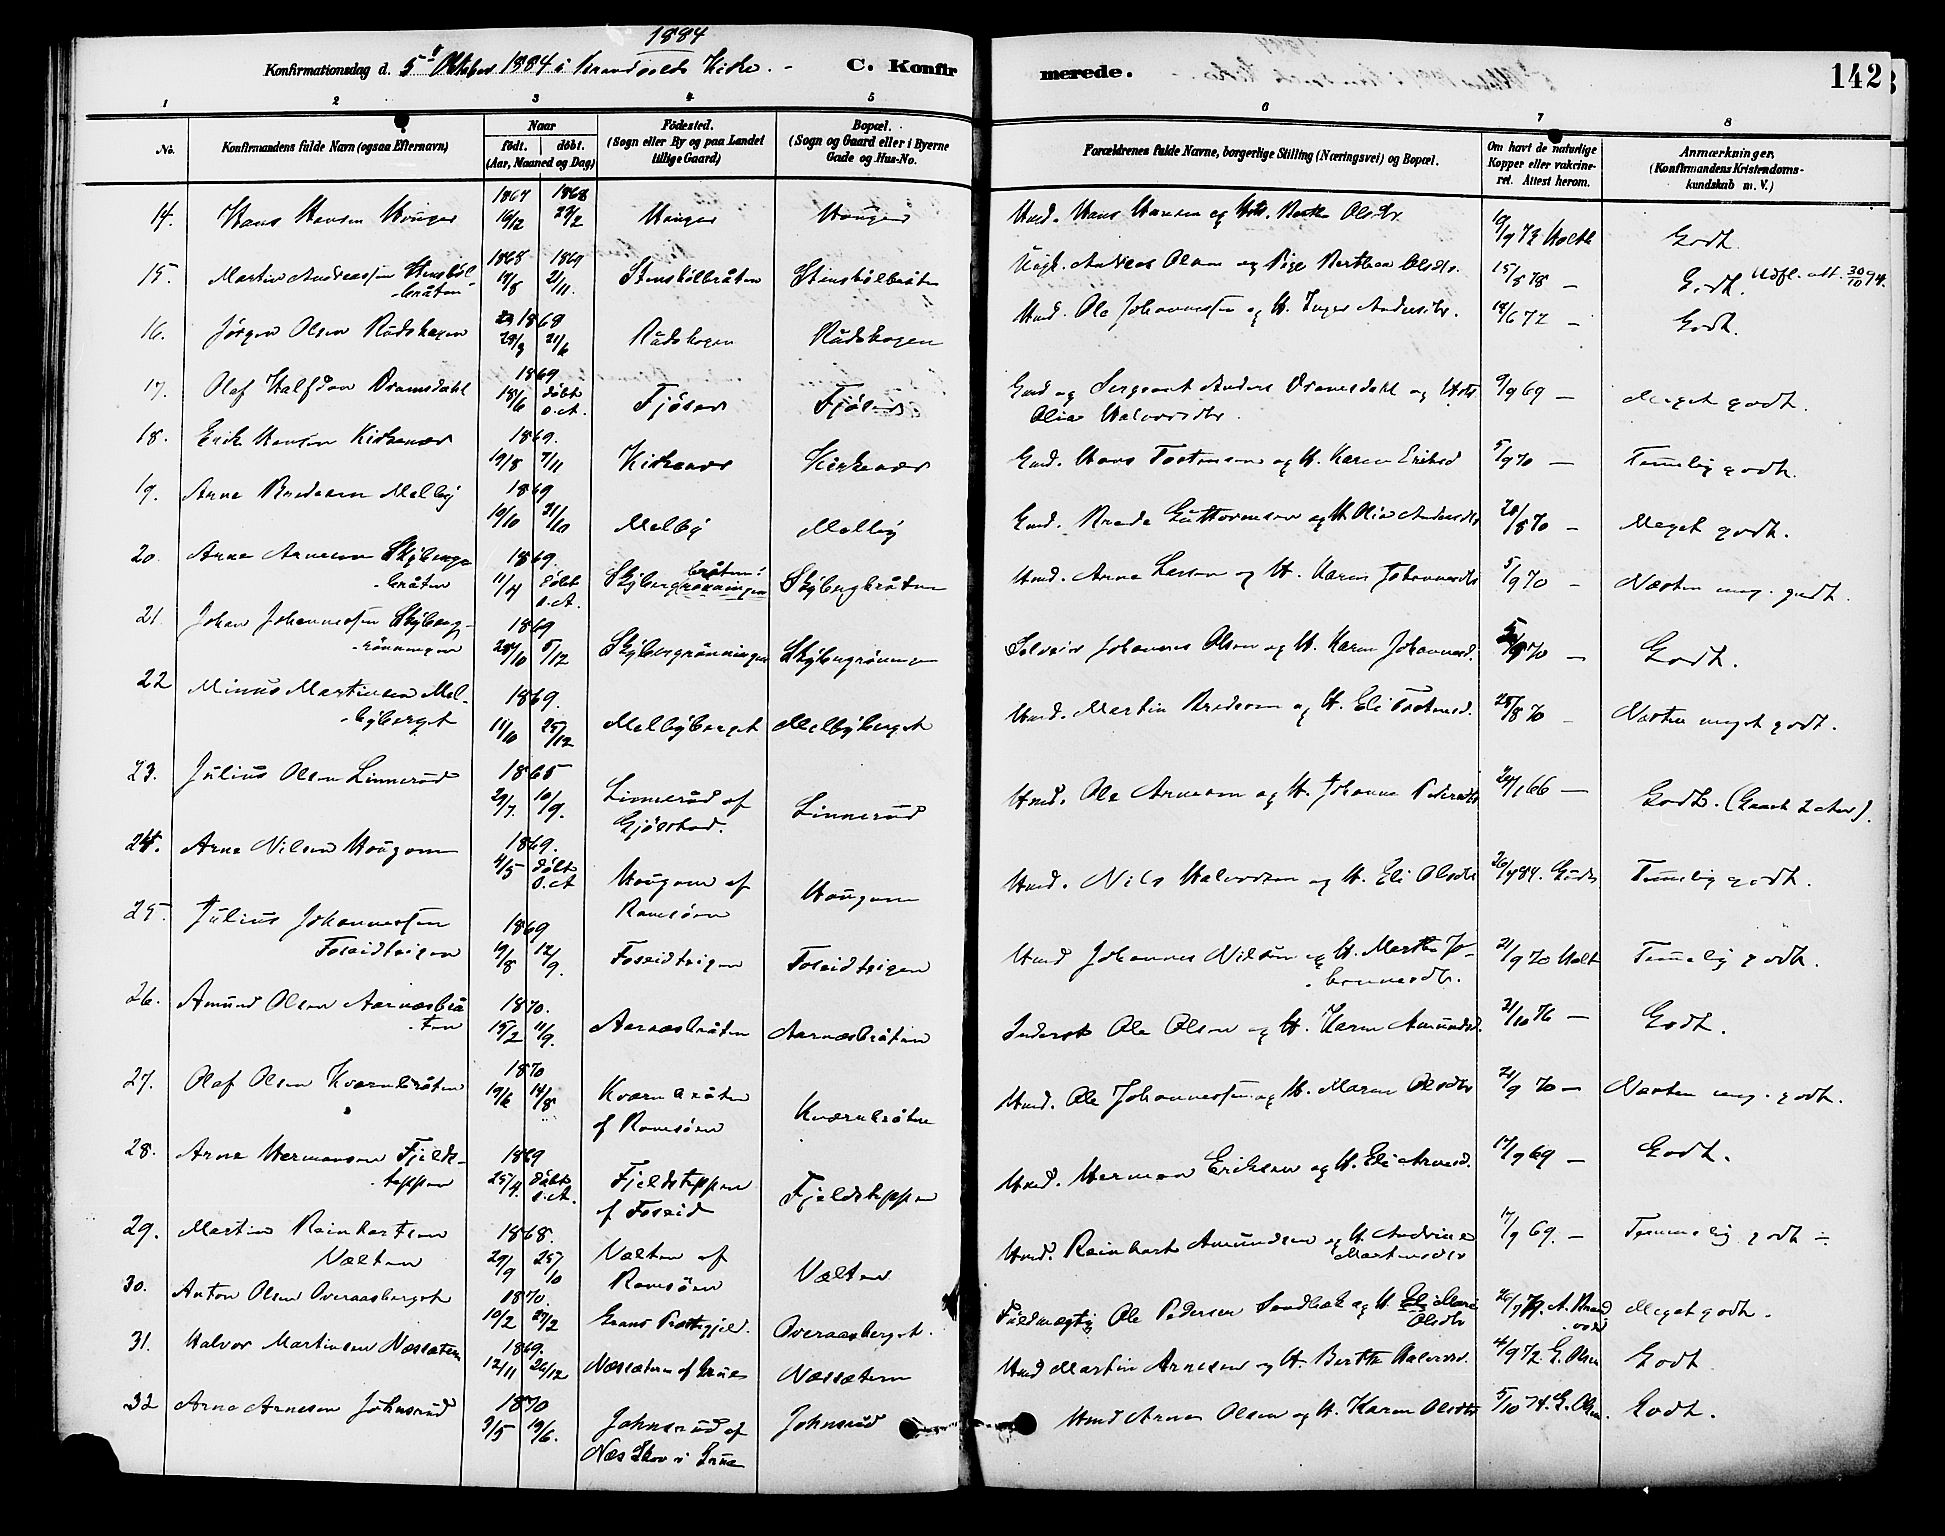 1884
Konfirmationsdag d. 5' Oktober 1884 i Brandvolds Kirke. - C. Konfir merede. 142
1 2 3 4 5 6 7 8
No. Konfirmandens fulde Navn (ogsaa Efternavn) Naar födt. döbt. (Aar, Maaned og Dag) Födested. (Sogn eller By og paa Landet tillige Gaard) Bopæl. (Sogn og Gaard eller i Byerne Gade og Hus-No. Forældrenes fulde Navne, borgerlige Stilling (Næringsvei) og Bopæl. Om havt de naturlige Kopper eller vakcineret. Attest herom. Anmærkninger. (Konfirmandens Kristendomskundskab m. V.)
14. Hans Hansen Houger 1867 16/2 1868 29/2 Houger Houger Hmd. Hans Hansen og Olsdr. Godt.
15. Martin Andreassen Stensbölbråten 1868 18/8 1869 21/11 Stensbölbråten Stensbölbråten Ungk. Andreas Olsen og Pige Berthea Olsdr. 15/8 78 — Godt. Udfl. att. 30/10 94.
16. Jörgen Olsen Rudshagen 1868 29/3 21/6 Rudshagen Rudshagen Hmd. Ole Johannessen og H. Inger Andersdr. 18/6 72 — Godt.
17. Olaf Halfdan Dramsdahl 1869 15/6 döbt s.A. Fjöser Fjöser Gmd og Sergeant Anders Dramsdahl og Hstr Olia Halvorsdtr. 9/9 69 — Meget godt.
18. Erik Hansen Kirkenær 1869. 19/8 7/11 Kirkenær Kirkenær Gmd. Hans Tostensen og H. Karen Eriksd 5/9 70 — Temelig godt.
19. Arne Bredesen Melby 1869 19/10 31/10 Melby Melby Gmd. Brede Guttormsen og H. Olia Andersdr 26/8 70 — Meget godt.
20. Arne Arnesen Skybergbråten 1869. 11/4 döbt s.A. Skybergrönningen bråten! Skybergbråten Hmd. Arne Larsen og H. Karen Johannesdr 5/9 70 — Næsten meg. godt.
21. Johan Johannessen Skybergrönningen 1869 28/10 5/12 Skybergrönningen Skybergrönningen Selveier Johannes Olsen og H. Karen Johannesd. 5/9 70 — Godt.
22 Minus Martinsen Melbyberget 1869. 11/10 25/12 Melbyberget Melbyberget Hmd. Martin Bredesen og H. Eli Tostensd. 28/8 70 — Næsten meget godt.
23. Julius Olsen Linnerud 1865 29/7. 10/9. Linnerud af Gjölstad. Linnerud Hmd. Ole Arnesen og H. Johanne Pedersdtr 24/1 66 — Godt.
24. Arne Nilsen Hougom 1869. 4/5 döbt s.A Hougom af Romsöen Hougom Hmd. Nils Halvorsen og H. Eli Olsdtr 26/9 84. Temelig godt.
25. Julius Johannessen Foseidteigen 1869 19/8 12/9. Foseidteigen Foseidteigen Hmd Johannes Nilsen og H. Marthe Johannesdtr. 21/9 70 Holt Temelig godt.
26. Amund Olsen Aarnæsbråten 1870. 15/2 11/9. Aarnæsbråten Aarnæsbråten Inderst Ole Olsen og H. Karen Amundsd. 21/10 76 — Godt.
27. Olaf Olsen Kværnbråten 1870 19/6 14/8 Kværnbråten af Romsöen Kværnbråten Hmd. Ole Johannessen og H. Maren Olsdtr 21/9 70 — Næsten meg. godt.
28. Arne Hermansen Fjeldstuppen 1869 25/4. döbt s.A. Fjeldstuppen af Foseid Fjeldstuppen Hmd. Herman Eriksen og H. Eli Arnesd. 17/9 69 — Godt.
29. Martin Reinhartsen Vælten 1868. 29/9 25/10 Vælten af Romsöen Vælten Hmd. Reinhart Amundsen og H. Andrine Martinsdtr 17/9 69. — Temmelig godt ÷
30. Anton Olsen Overaasberget 1870. 10/2 27/2 Grue Præstegjeld. Overaasberget. Fuldmægtig Ole Pedersen Sandbæk og H. Eli Marie Olsdtr Meget godt.
31. Halvor Martinsen Næssætern 1869. 12/11 26/12 Næssætern af Grue Næssætern Hmd Martin Arnesen og H. Berthe Halvorsd. 4/9 72 G. Olsen Godt.
32 Arne Arnesen Johnsrud 1870 9/5 19/6. Johnsrud af Næs Skov i Grue Johnsrud Hmd Arne Olsen og H. Karen Olsdtr 5/10 71. G. Olsen. Godt.